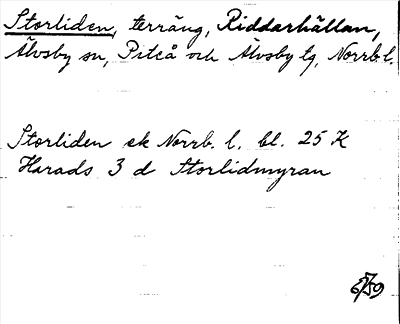 Storliden, terräng, Riddarhällan,
Älvsby sn, Piteå och Älvsby tg, Norrb. l.
Storliden ek Norrb. l. bl. 25 K
Harads 3 d Storlidmyran